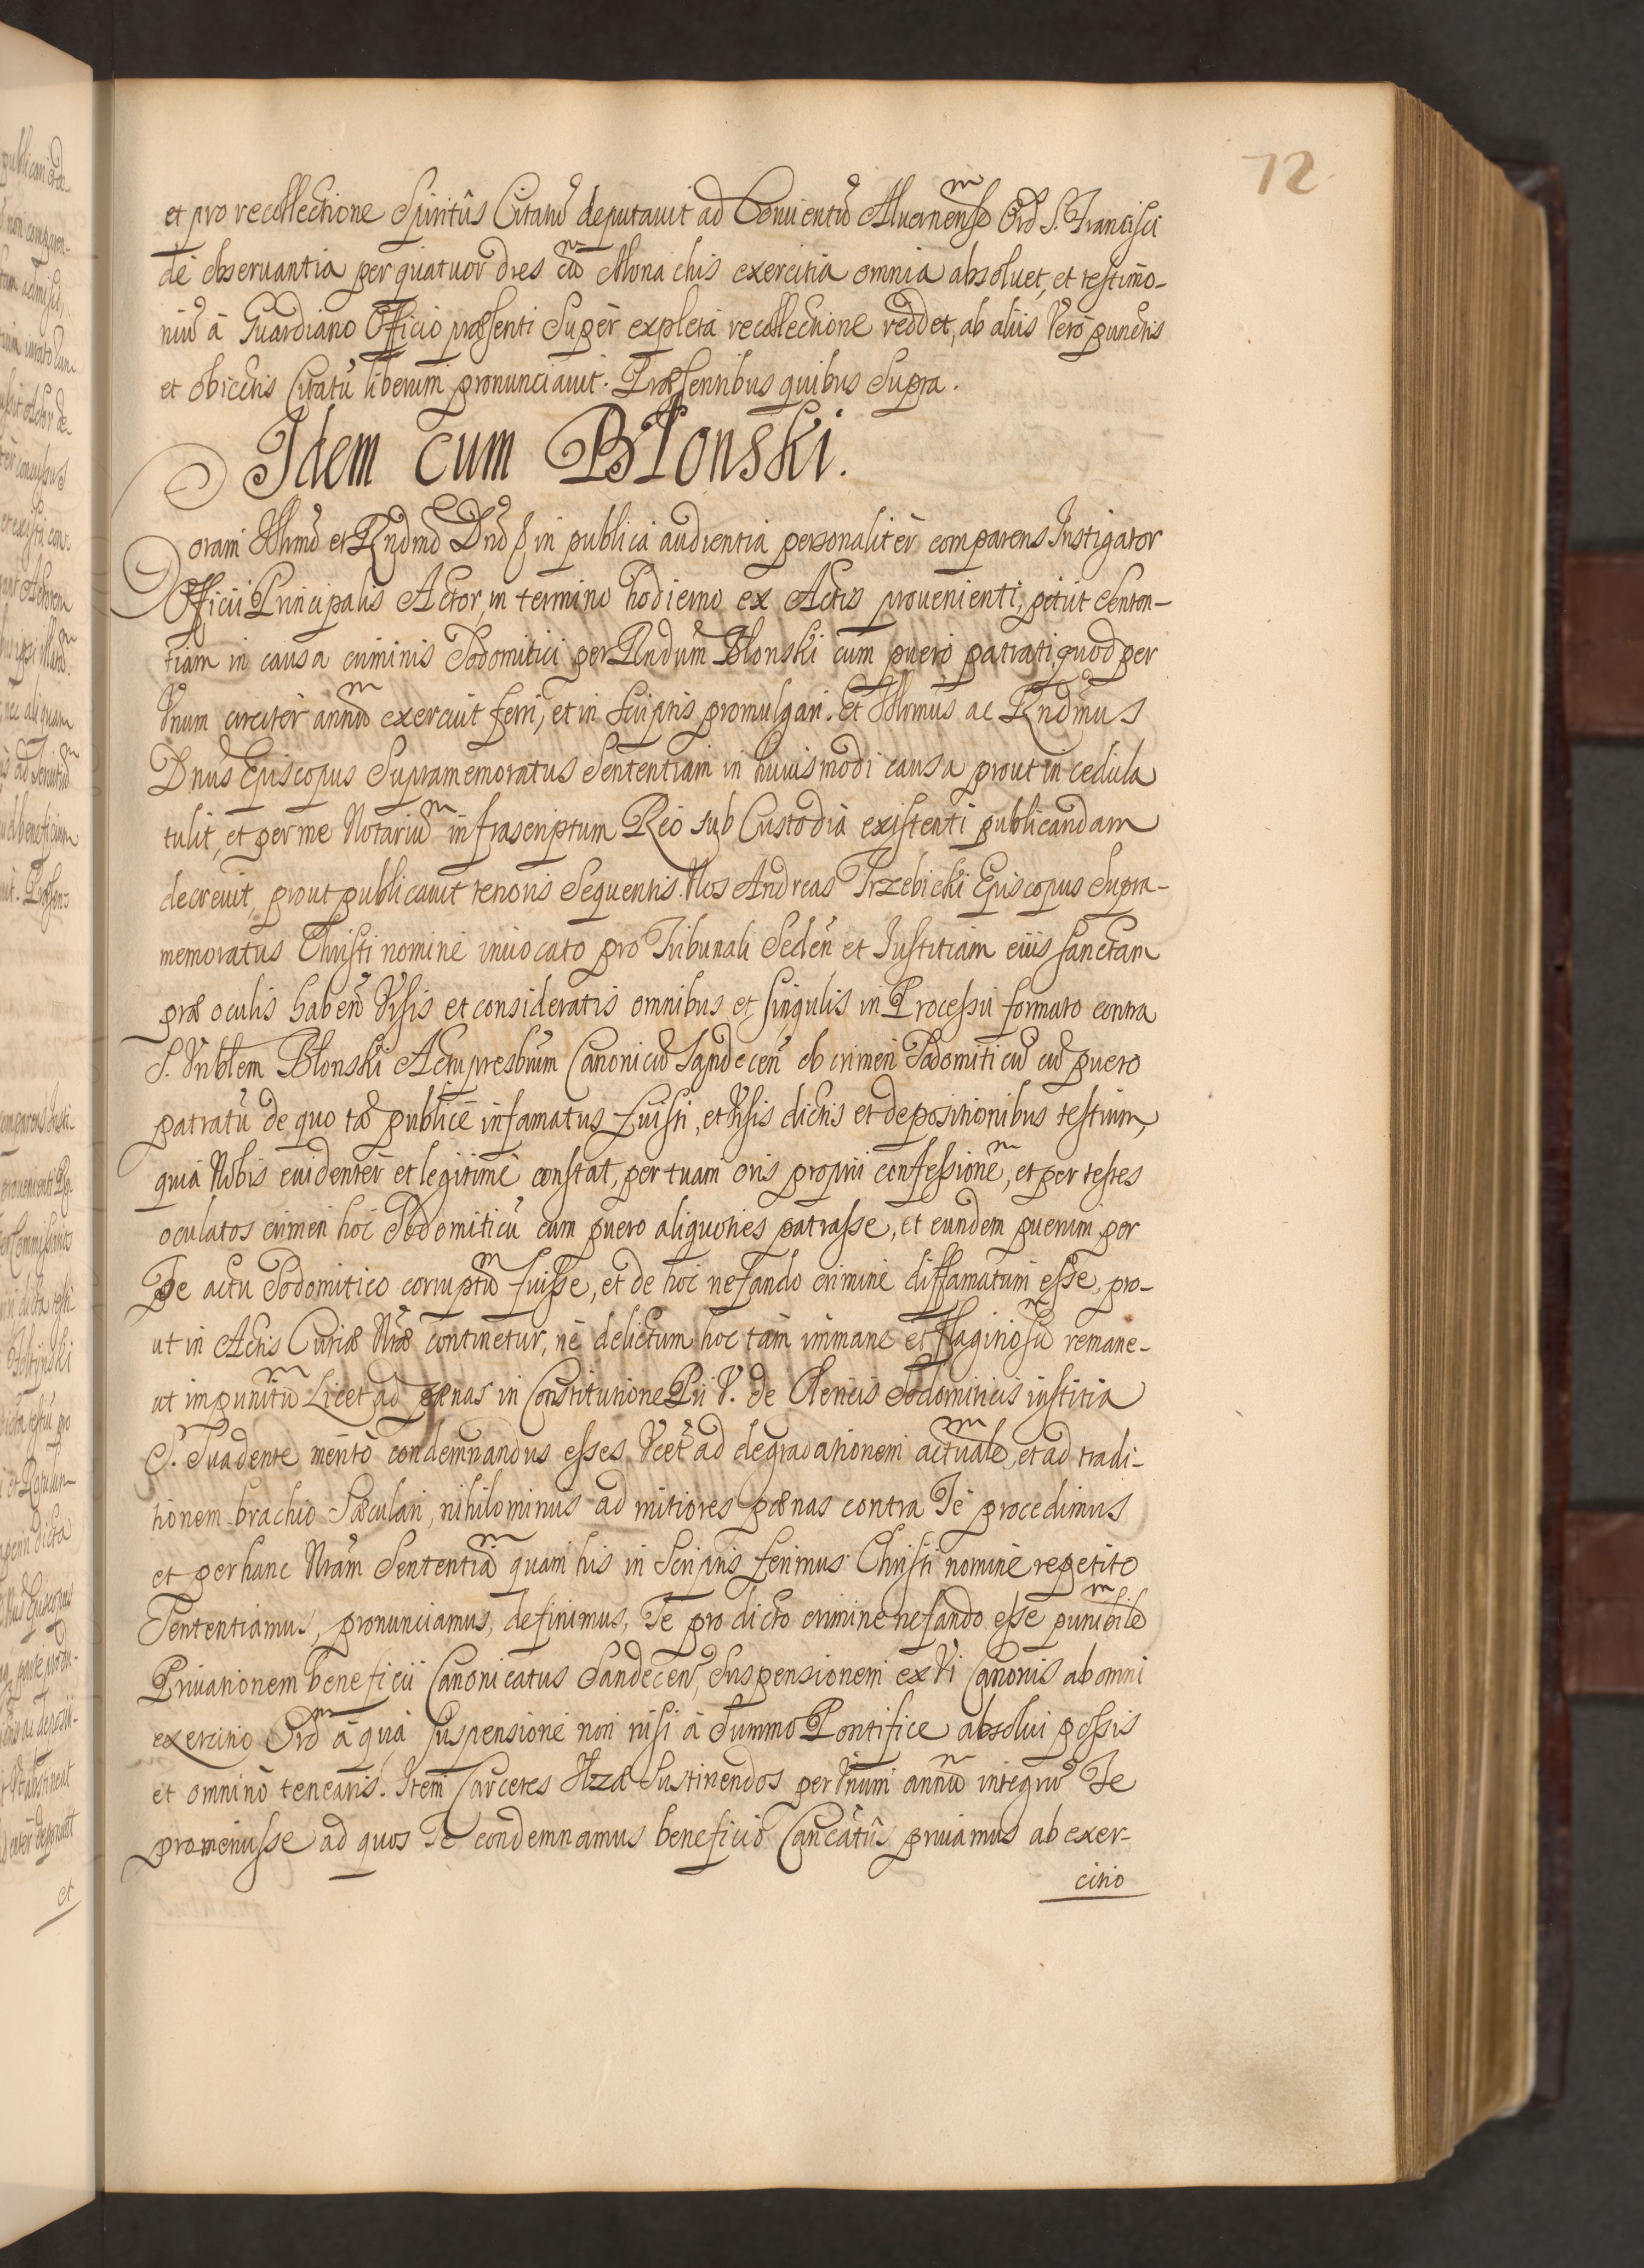 72
et pro recollectione Spiritûs Citatũ deputauit ad Conuentũ Aluernensem Ord S. Francisci
de obseruantia per quatuor dies cũ Monachis exercitia omnia absoluet, et testimo-
niũ à Guardiano Officio præsenti Super expleta recollectione reddet, ab aliis Verò punctis
et obiectis Citatũ liberum pronunciauit. Præsentibus quibus Supra.
Idem cum Błonski.
Coram Illmo et Rndmo Dno in publica audientia personalitèr comparens Instigator
Officii Principalis Actor in termino hodierno ex Actis prouenienti, petiit Senten-
tiam in causa criminis Sodomitici per Rndum Błonski cum puero patrati, quod per
Vnum circitèr annum exercuit ferri, et in Scriptis promulgari. Et Illmus ac Rndmus
Dnus Episcopus Supramemoratus Sententiam in huiusmodi causa prout in cedula
tulit, et per me Notarium infrascriptum Reo sub Custodia existenti publicandam
decreuit, prout publicauit tenoris Sequentis. Nos Andreas Trzebicki Episcopus Supra-
memoratus Christi nomine inuocato pro Tribunali Seden et Iustitiam eius sanctam
præ oculis haben Visis et consideratis omnibus et singulis in Processu formato contra
S. Vnblem Błonski Archipresbrum Canonicũ Sandecen ob crimen Sodomiticũ cũ puero
patratũ de quo publicè infamatus fuisti, et Visis dictis et depositionibus testium,
quia Nobis euidentèr et legitimè constat, per tuam oris proprii confessionem, et per testes
oculatos crimen hoc Sodomiticũ cum puero aliquoties patrasse, et eundem puerum per
Te actu Sodomitico corruptum fuisse, et de hoc nefando crimine diffamatum esse, pro-
ut in Actis Curiæ Nræ continetur, nè delictum hoc tàm immane et flagitiosum remane-
at impunitum Licet ad pœnas in Constitutione Pii V. de Clericis Sodomiticis iustitia
S. Suadente meritò condemnandus esses. Vcet ad degradationem actualem, et ad tradi-
tionem brachio Sæculari, nihilominus ad mitiores pœnas contra Te procedimus
et per hanc Nram Sententiam quam his in Scriptis ferimus Christi nomine repetito
Sententiamus, pronunciamus, definimus, Te pro dicto crimine nefando esse punibilem
Priuationem beneficii Canonicatus Sandecen, Suspensionem ex Vi Canonis ab omni
exercitio Ordm à qua Suspensione non nisi à Summo Pontifice absolui possis
et omninò tenearis. Item Carceres Ilzæ Sustinendos per Vnum annum integrũ Te
promeriusse ad quos Te condemnamus beneficio Cancatûs priuamus ab exer-
citio